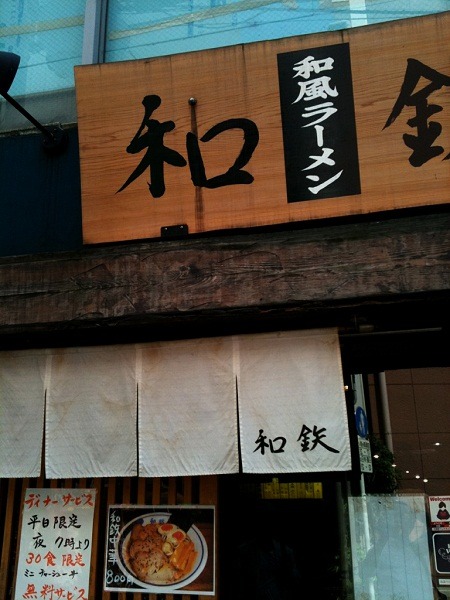 和
和風ラーメン
和鉄
ディナーサービス
平日限定
夜 7時より
30食限定
ミニチャーシュー丼
無料サービス
800円
Welcome